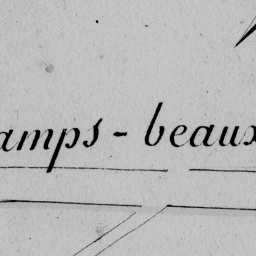 amps - beaux